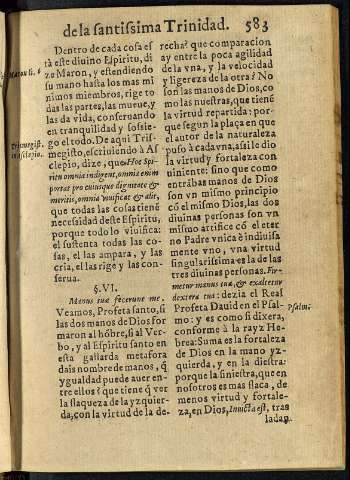 de la santissima Trinidad. 583
Dentro de cada cosa es
tà este diuino Espiritu, di
ze Maron, y estendiendo
su mano hasta los mas mi
nimos miembros, rige to
das las partes, las mueue, y
las da vida, conseruando
en tranquilidad y sossie-
go el todo. De aqui Tris-
megisto, escriuiendo à As
clepio, dize, que Hoc Spi-
ritu omnia indigent, omnia enim
portat pro cuiusque dignitate &
meritis, omnia viuificat & alit,
que todas las cosas tiené
necessidad deste Espiritu,
porque todo lo viuifica:
el sustenta todas las co-
sas, el las ampara, y las
cria, el las rige y las con-
serua.
§. VI.
Manus tuæ fecerunt me.
Veamos, Profeta santo, si
las dos manos de Dios for
maron al hóbre, si al Ver-
bo, y al Espiritu santo en
esta gallarda metafora
dais nombre de manos, q̃
ygualdad puede auer en-
tre ellos? que tiene q̃ ver
la flaqueza de la yzquier
da, con la virtud de la de-
Maron li. 6
Trismegist.
in asclepio.
recha? que comparacion
ay entre la poca agilidad
de la vna, y la velocidad
y ligereza de la otra? No
son las manos de Dios, co
mo las nuestras, que tiené
la virtud repartida: por-
que segun la plaça en que
el autor de la naturaleza
puso à cada vna, assi le dio
la virtud y fortaleza con
uiniente: sino que como
entrábas manos de Dios
son vn mismo principio
có el mismo Dios, las dos
diuinas personas son vn
mismo artifice có el eter
no Padre vnica è indiuisa
mente vno, vna virtud
singularissima es la de las
tres diuinas personas. Fir-
metur manus tua, & exaltetur
dextera tua: dezia el Real
Profeta Dauid en el Psal-
mo: y es como si dixera,
conforme à la rayz He-
brea: Suma es la fortaleza
de Dios en la mano yz-
quierda, y en la diestra:
porque la siniestra, que en
nosotros es mas flaca, de
menos virtud y fortale-
za, en Dios, Inuicta est, tras
Psalm.
ladan